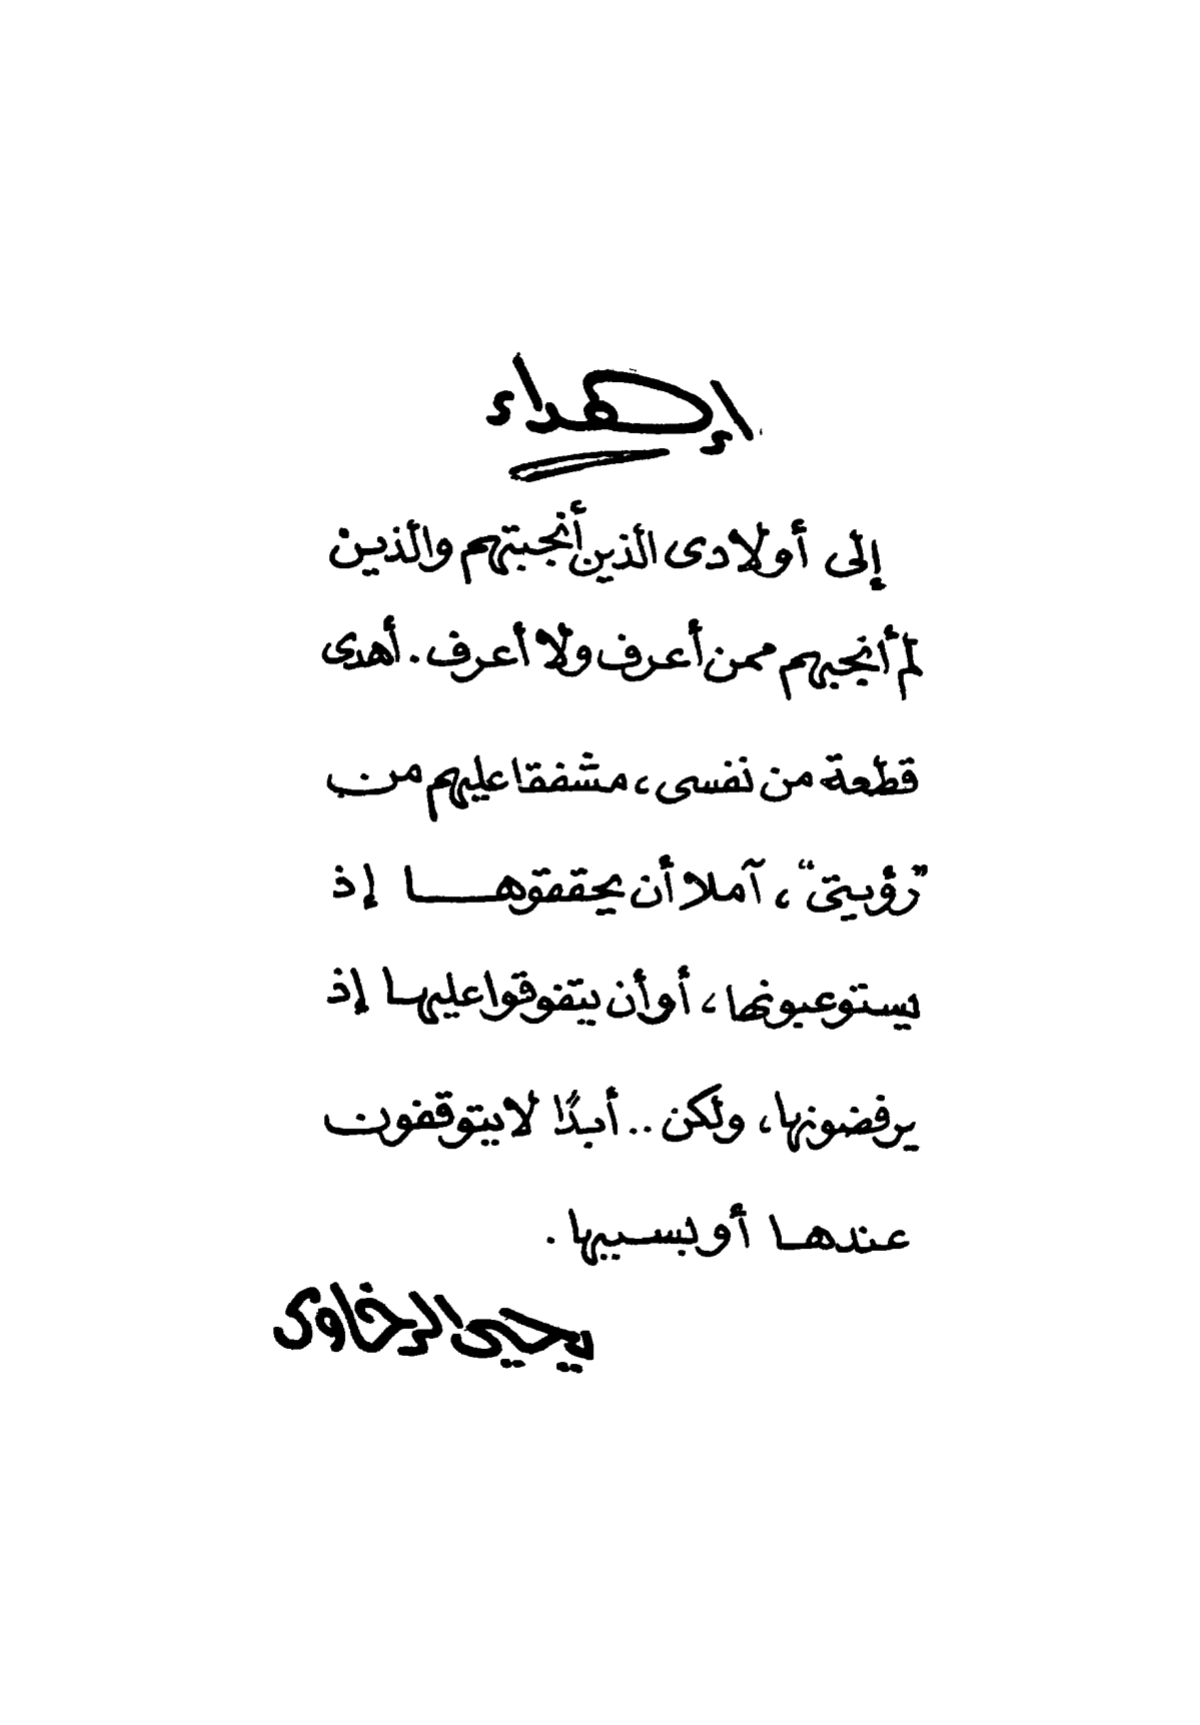 إهداء
إلى أولادى الذين أنجبتهم والذين
لم أنجبهم ممن أعرف ولا أعرف. أهدى
قطعة من نفسى، مشفقا عليهم من
"رؤيتى"، آملا أن يحققوها إذ
يستوعبونها، أو أن يتفوقوا عليها إذ
يرفضونها، ولكن.. أبدًا لا يتوقفون
عندها أو بسببها.
يحيى الرخاوى